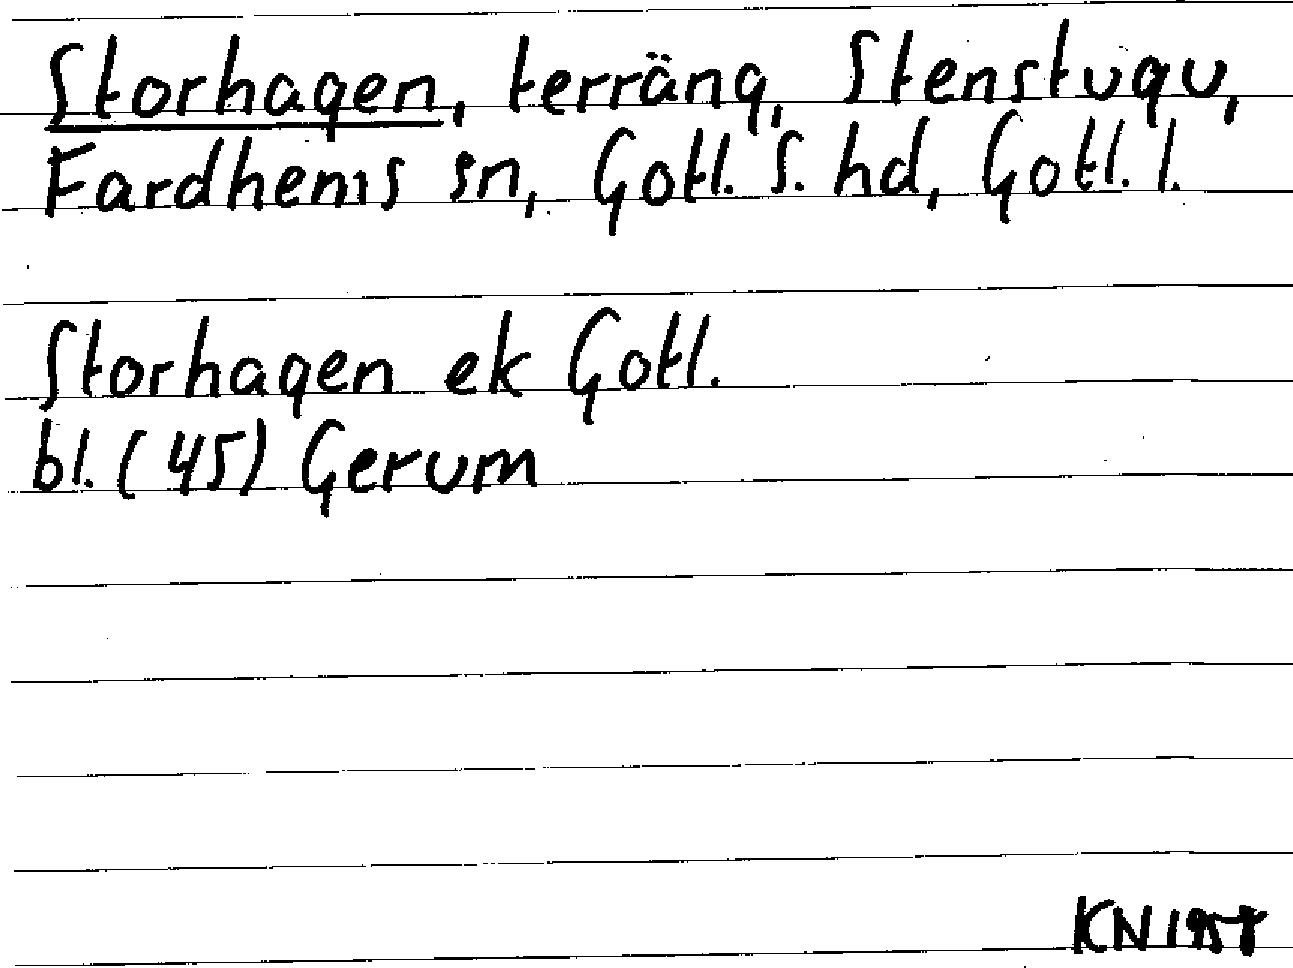 Storhagen, terräng, Stenstugu,
Fardhems sn, Gotl. S. hd, Gotl. l.
Storhagen ek Gotl.
bl. (45) Gerum
KN 1957